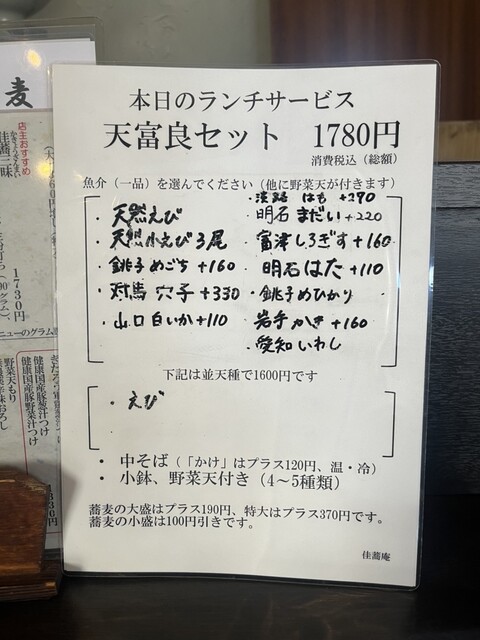 本日のランチサービス
天富良セット 1780円
消費税込（総額）
魚介（一品）を選んでください（他に野菜天が付きます）
・天然えび
・天然小えび3尾
・銚子めごち+160
・対馬 穴子+330
・山口白いか+110
・淡路 はも +270
・明石 まだい+220
・富津しろぎす+160
・明石はた+110
・銚子めひかり
・岩手かき+160
・愛知いわし
下記は並天種で1600円です
・えび
・中そば（「かけ」はプラス120円、温・冷）
・小鉢、野菜天付き（4～5種類）
蕎麦の大盛はプラス190円、特大はプラス370円です。
蕎麦の小盛は100円引きです。
佳蕎庵
麦
店主おすすめ
佳蕎三昧
1730円
ニューのグラム
健康国産豚葱汁つけ
健康国産豚野菜汁つけ
野菜天もり